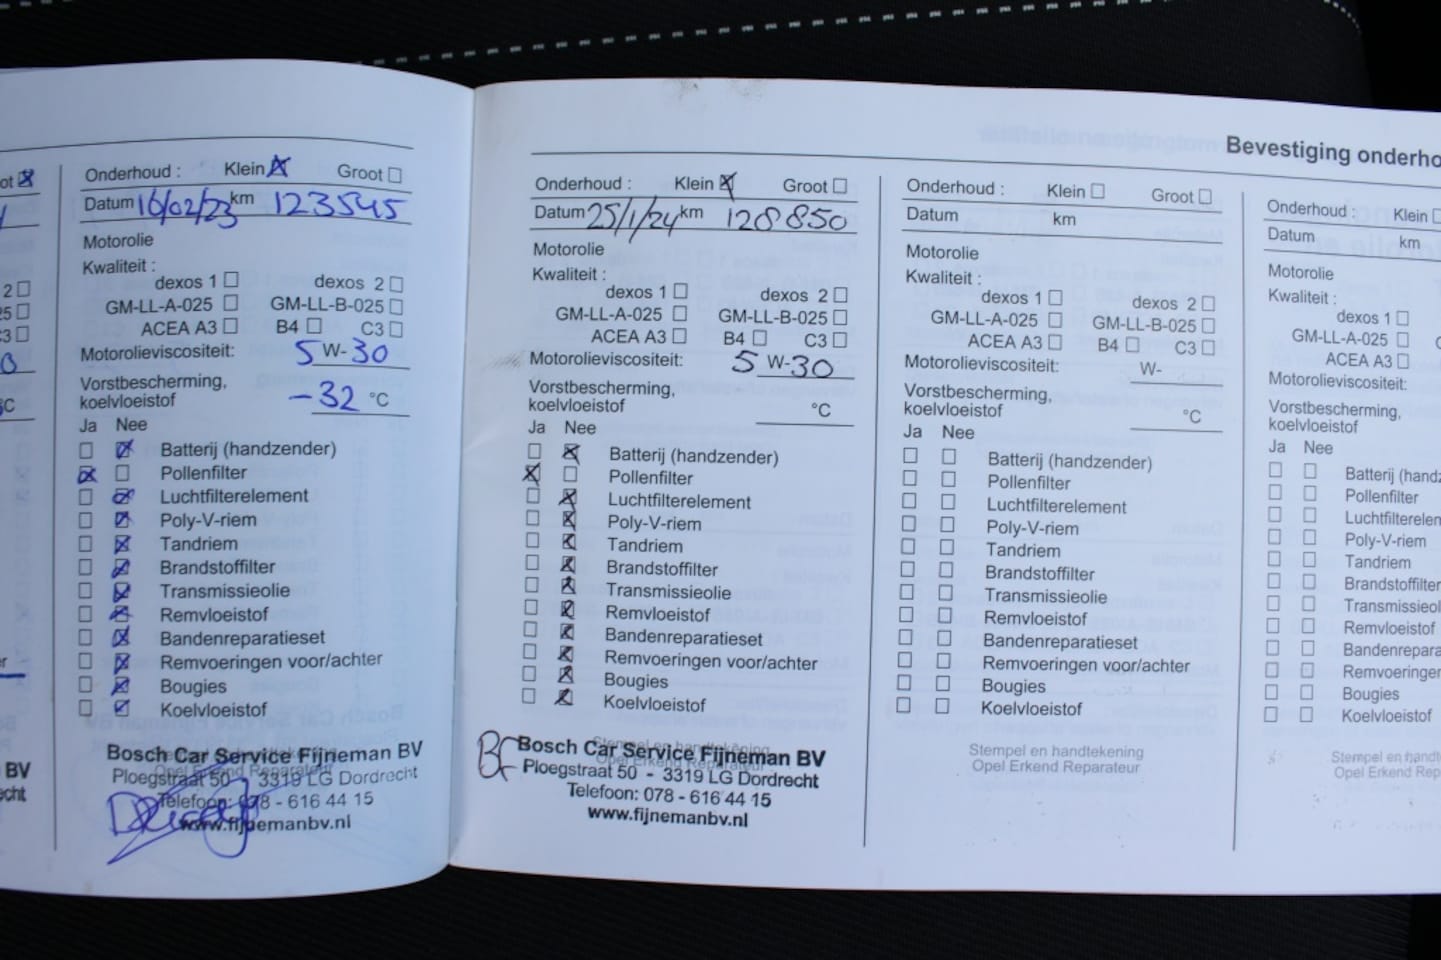 Bevestiging onderho
ot
2
25
C3
°C
er
BV
echt
Onderhoud : Klein Groot
Datum 16/02/23 km 123545
Motorolie
Kwaliteit :
dexos 1 dexos 2
GM-LL-A-025 GM-LL-B-025
ACEA A3 B4 C3
Motorolieviscositeit: 5 W- 30
Vorstbescherming,
koelvloeistof -32 °C
Ja Nee
Batterij (handzender)
Pollenfilter
Luchtfilterelement
Poly-V-riem
Tandriem
Brandstoffilter
Transmissieolie
Remvloeistof
Bandenreparatieset
Remvoeringen voor/achter
Bougies
Koelvloeistof
Bosch Car Service Fijneman BV
Ploegstraat 50 - 3319 LG Dordrecht
Opel Erkend Reparateur
Telefoon: 078 - 616 44 15
www.fijnemanbv.nl
Onderhoud : Klein Groot
Datum 25/1/24 km 128850
Motorolie
Kwaliteit :
dexos 1 dexos 2
GM-LL-A-025 GM-LL-B-025
ACEA A3 B4 C3
Motorolieviscositeit: 5 W-30
Vorstbescherming,
koelvloeistof °C
Ja Nee
Batterij (handzender)
Pollenfilter
Luchtfilterelement
Poly-V-riem
Tandriem
Brandstoffilter
Transmissieolie
Remvloeistof
Bandenreparatieset
Remvoeringen voor/achter
Bougies
Koelvloeistof
Stempel en handtekening
Bosch Car Service Fijneman BV
Ploegstraat 50 - 3319 LG Dordrecht
Telefoon: 078 - 616 44 15
www.fijnemanbv.nl
Onderhoud : Klein Groot
Datum km
Motorolie
Kwaliteit :
dexos 1 dexos 2
GM-LL-A-025 GM-LL-B-025
ACEA A3 B4 C3
Motorolieviscositeit: W-
Vorstbescherming,
koelvloeistof °C
Ja Nee
Batterij (handzender)
Pollenfilter
Luchtfilterelement
Poly-V-riem
Tandriem
Brandstoffilter
Transmissieolie
Remvloeistof
Bandenreparatieset
Remvoeringen voor/achter
Bougies
Koelvloeistof
Stempel en handtekening
Opel Erkend Reparateur
Onderhoud : Klein
Datum km
Motorolie
Kwaliteit :
dexos 1
GM-LL-A-025
ACEA A3
Motorolieviscositeit:
Vorstbescherming,
koelvloeistof
Ja Nee
Batterij (handz
Pollenfilter
Luchtfilterelen
Poly-V-riem
Tandriem
Brandstoffilter
Transmissieol
Remvloeistof
Bandenrepara
Remvoeringen
Bougies
Koelvloeistof
Stempel en handtek
Opel Erkend Reparat